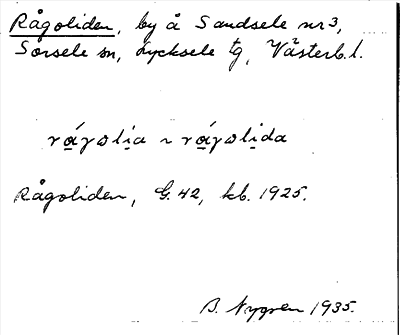 Rågoliden, by å Sandsele nr 3,
Sorsele sn, Lycksele tg, Västerb. l.
rá̱gωli̱a ~ rá̱gωli̱da
Rågoliden, G. 42, kb. 1925.
B. Nygren 1935.